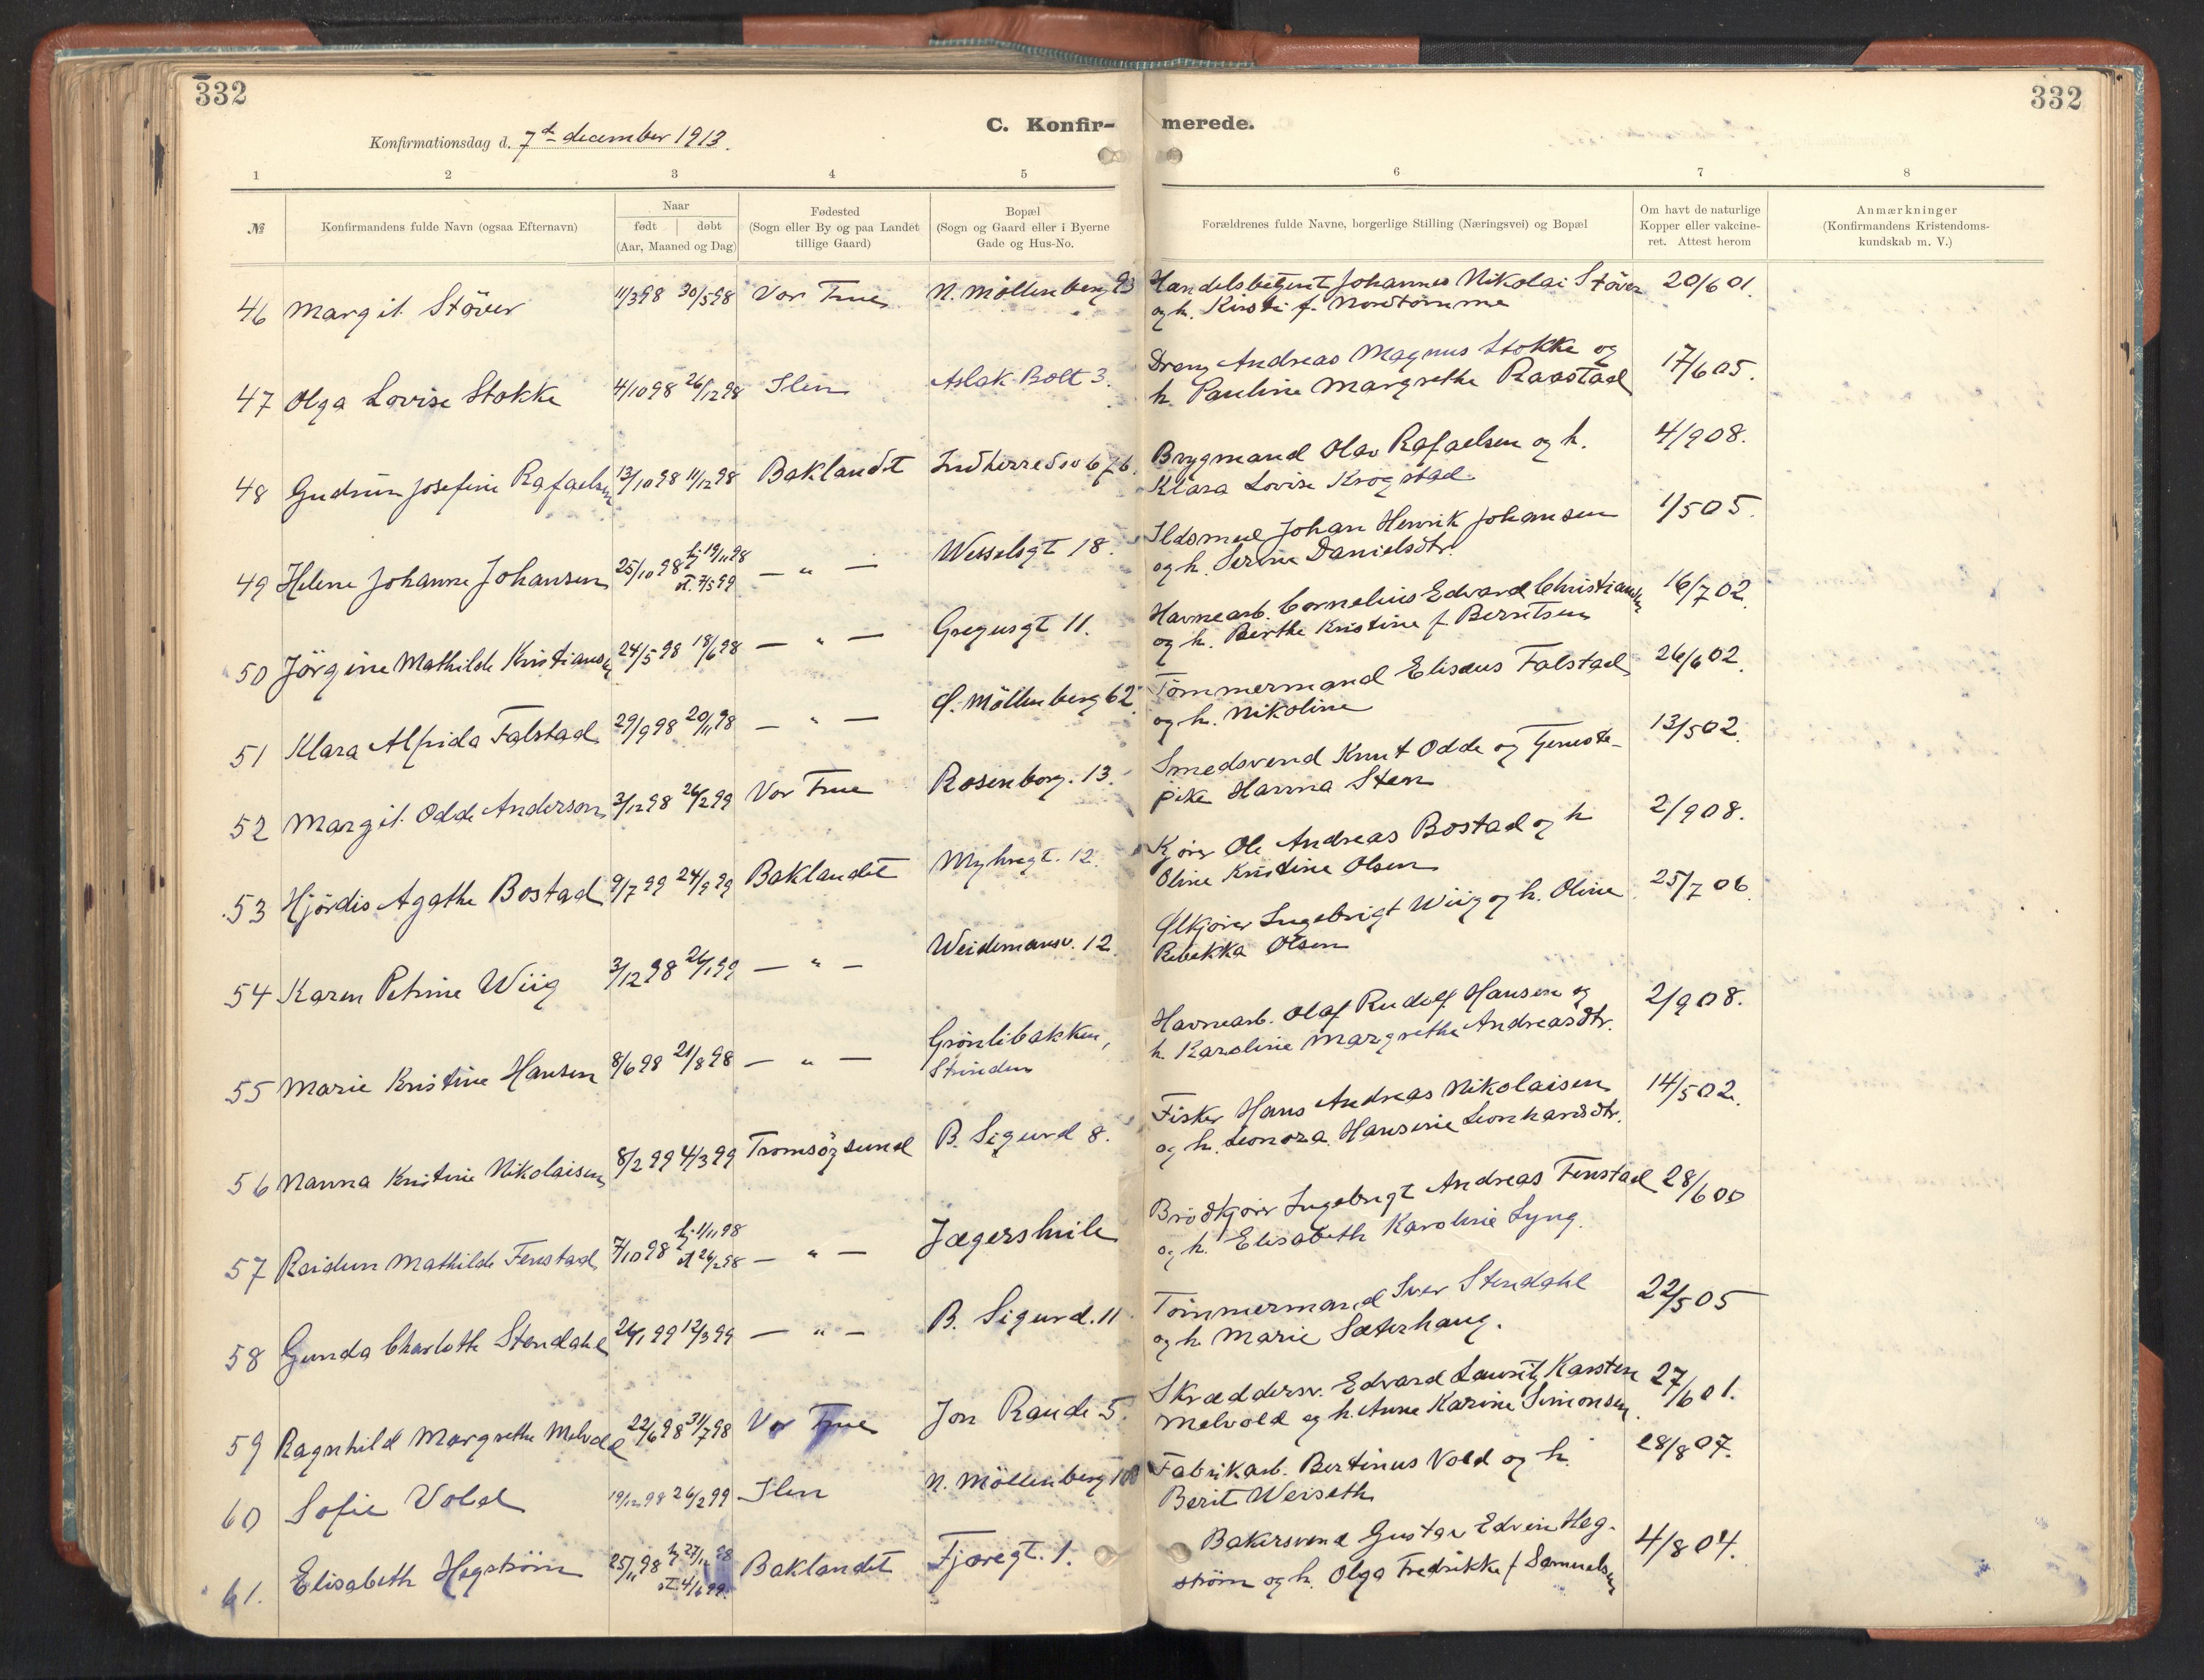 332
332
C. Konfir-
merede.
Konfirmationsdag d. 7de december 1913.
1 2 3 4 5 6 7 8
№ Konfirmandens fulde Navn (ogsaa Efternavn) Naar født døbt (Aar, Maaned og Dag) Fødested (Sogn eller By og paa Landet tillige Gaard) Bopæl (Sogn og Gaard eller i Byerne Gade og Hus-No. Forældrenes fulde Navne, borgerlige Stilling (Næringsvei) og Bopæl Om havt de naturlige Kopper eller vakcineret. Attest herom Anmærkninger (Konfirmandens Kristendomskundskab m. V.)
46 Margit Stöver 11/3 98 30/5 98 Vor Frue N. Möllenberg 93 Handelsbetjent Johannes Nikolai Stöver 20/6 01.
og h. Kirsti f. Nordtömme
47 Olga Lovise Stokke 4/10 98 26/12 98 Ilen Aslak Bolt 3. Dreng Andreas Magnus Stokke og 17/6 05.
h. Pauline Margrethe Raastad
48 Gudrun Josefine Rafaelsen 13/10 98 11/12 98 Baklandet Indherredsv 67 b. Brygmand Olav Rafaelsen og h. 4/9 08.
Klara Lovise Krogstad
49 Helene Johanne Johansen 25/10 98 hj. 19/11 98 st. 7/5 99 — " — Wesselsgt 18. Ildsmed Johan Henrik Johansen 1/5 05.
og h. Serine Danielsdtr.
50 Jörgine Mathilde Kristiansen 24/5 98 18/6 98 — " — Gregusgt 11. Havnearb. Cornelius Edvard Christiansen 16/7 02.
og h. Berthe Kristine f Berntsen
51 Klara Alfrida Falstad 29/9 98 20/11 98 — " — Ø. Möllenberg 62. Tömmermand Elisæus Falstad 26/6 02.
og h. Nikoline
52 Margit Odde Anderson 3/12 98 26/2 99 Vor Frue Rosenborg. 13. Smedsvend Knut Odde og Tjeneste- 13/5 02.
pike Hanna Sten
53 Hjördis Agathe Bostad 9/7 99 24/9 99 Baklandet Myhregt. 12. Kjörer Ole Andreas Bostad og h 2/9 08.
Oline Kristine Olsen
54 Karen Petrine Wiig 3/12 98 26/1 99 — " — Weidemansv. 12 Ølkjörer Ingebrigt Wiig og h. Oline 25/7 06.
Rebekka Olsen
55 Marie Kristine Hansen 8/6 98 21/8 98 — " — Grönlibakken, Strinden Havnearb. Olaf Rudolf Hansen og 2/9 08.
h. Karoline Margrethe Andreasdtr.
56 Nanna Kristine Nikolaisen 8/2 99 4/3 99 Tromsöysund B. Sigurd 8. Fisker Hans Andreas Nikolaisen 14/5 02.
og h. Leonora Hansine Leonhardsdtr.
57 Reidun Mathilde Fenstad 7/10 98 hj. 1/11 98 st 26/12 98 — " — Jægershvile Brödkjörer Ingebrigt Andreas Fenstad 28/6 00
og h. Elisabeth Karoline Lyng.
58 Gunda Charlotte Stendahl 26/1 99 12/3 99 — " — B. Sigurd. 11 Tömmermand Iver Stendahl 22/5 05
og h. Marie Sæterhaug.
59 Ragnhild Margrethe Melvold 22/6 98 31/7 98 Vor Frue Jon Raude 5. Skræddersv. Edvard Lauritz Karsten 27/6 01.
Melvold og h. Anne Karine Simonsen.
60 Sofie Vold 19/12 98 26/2 99 Ilen N. Möllenberg 100 Fabrikarb. Bertinus Vold og h. 28/8 07.
Berit Weiseth
61. Elisabeth Hegström 25/11 98 hj 27/11 98 st. 4/6 99. Baklandet Fjæregt. 1. Bakersvend Gustav Edvin Heg- 4/8 04.
ström og h. Olga Fredrikke f Samuelsen